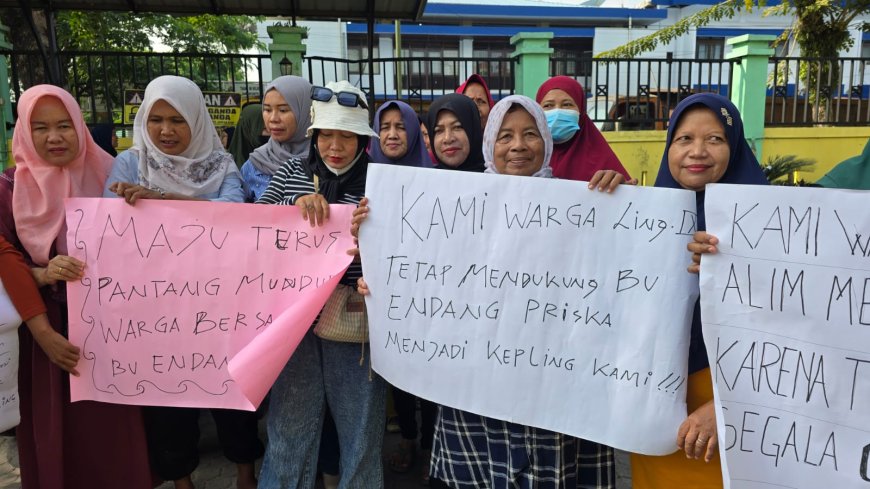 MAJU TERUS
PANTANG MUNDU
WARGA BERSA
BU ENDAN
KAMI WARGA Ling.
TETAP MENDUKUNG BU
ENDANG PRISKA
MENJADI KEPLING KAMI !!!
KAMI WA
ALIM ME
KARENA T
SEGALA